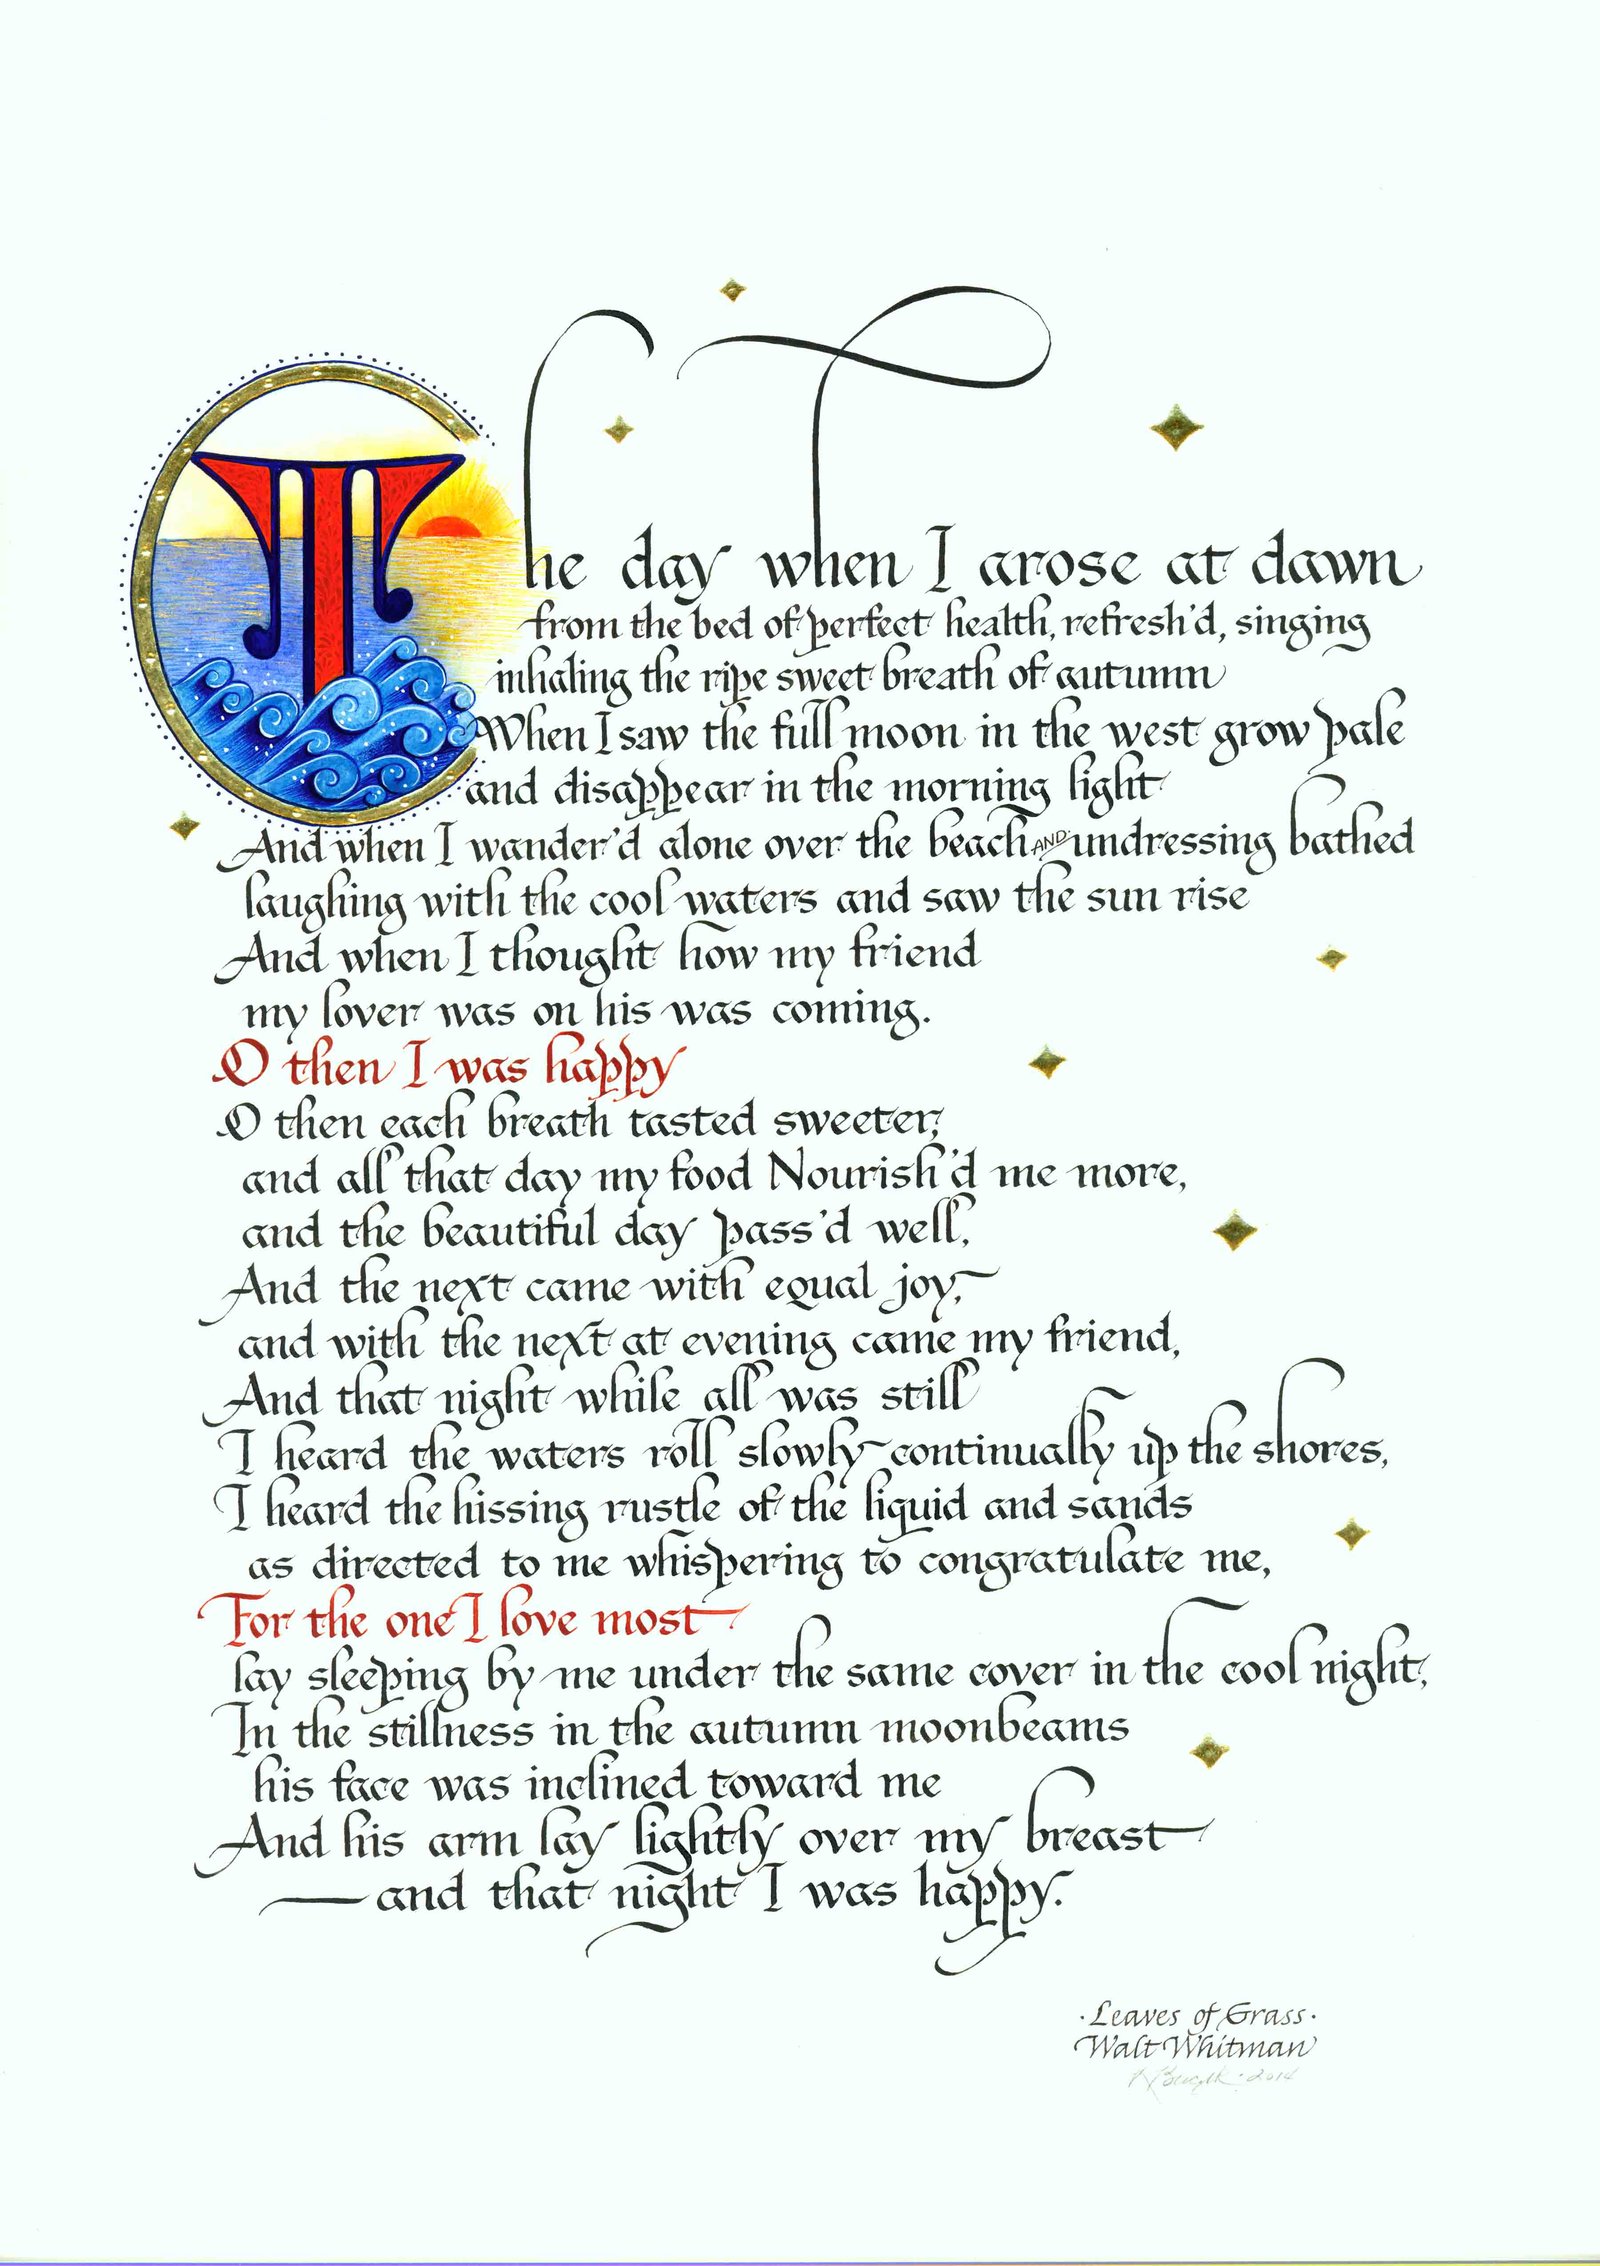 The day when I arose at dawn
from the bed of perfect health, refresh'd, singing
inhaling the ripe sweet breath of autumn
When I saw the full moon in the west grow pale
and disappear in the morning light
And when I wander'd alone over the beach AND undressing bathed
laughing with the cool waters and saw the sun rise
And when I thought how my friend
my lover was on his was coming.
O then I was happy
O then each breath tasted sweeter,
and all that day my food Nourish'd me more,
and the beautiful day pass'd well,
And the next came with equal joy,
and with the next at evening came my friend,
And that night while all was still
I heard the waters roll slowly continually up the shores,
I heard the hissing rustle of the liquid and sands
as directed to me whispering to congratulate me,
For the one I love most
lay sleeping by me under the same cover in the cool night,
In the stillness in the autumn moonbeams
his face was inclined toward me
And his arm lay lightly over my breast
—and that night I was happy.
·Leaves of Grass·
Walt Whitman
2014